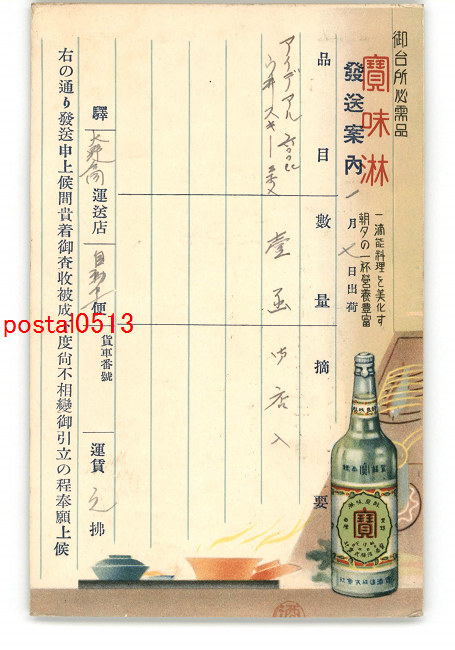 御台所必需品
寶味淋
一滴能料理を美化す
朝夕の一杯營養豊富
發送案內
一月七日出荷
品目
數量
摘要
アイデアル
ウ井スキー
壹函
店入
驛
運送店
自動車便
貨車番號
運賃元拂
右の通り發送申上候間貴着御査收被成
度尙不相變御引立の程奉願上候
寶
酒
postal0513